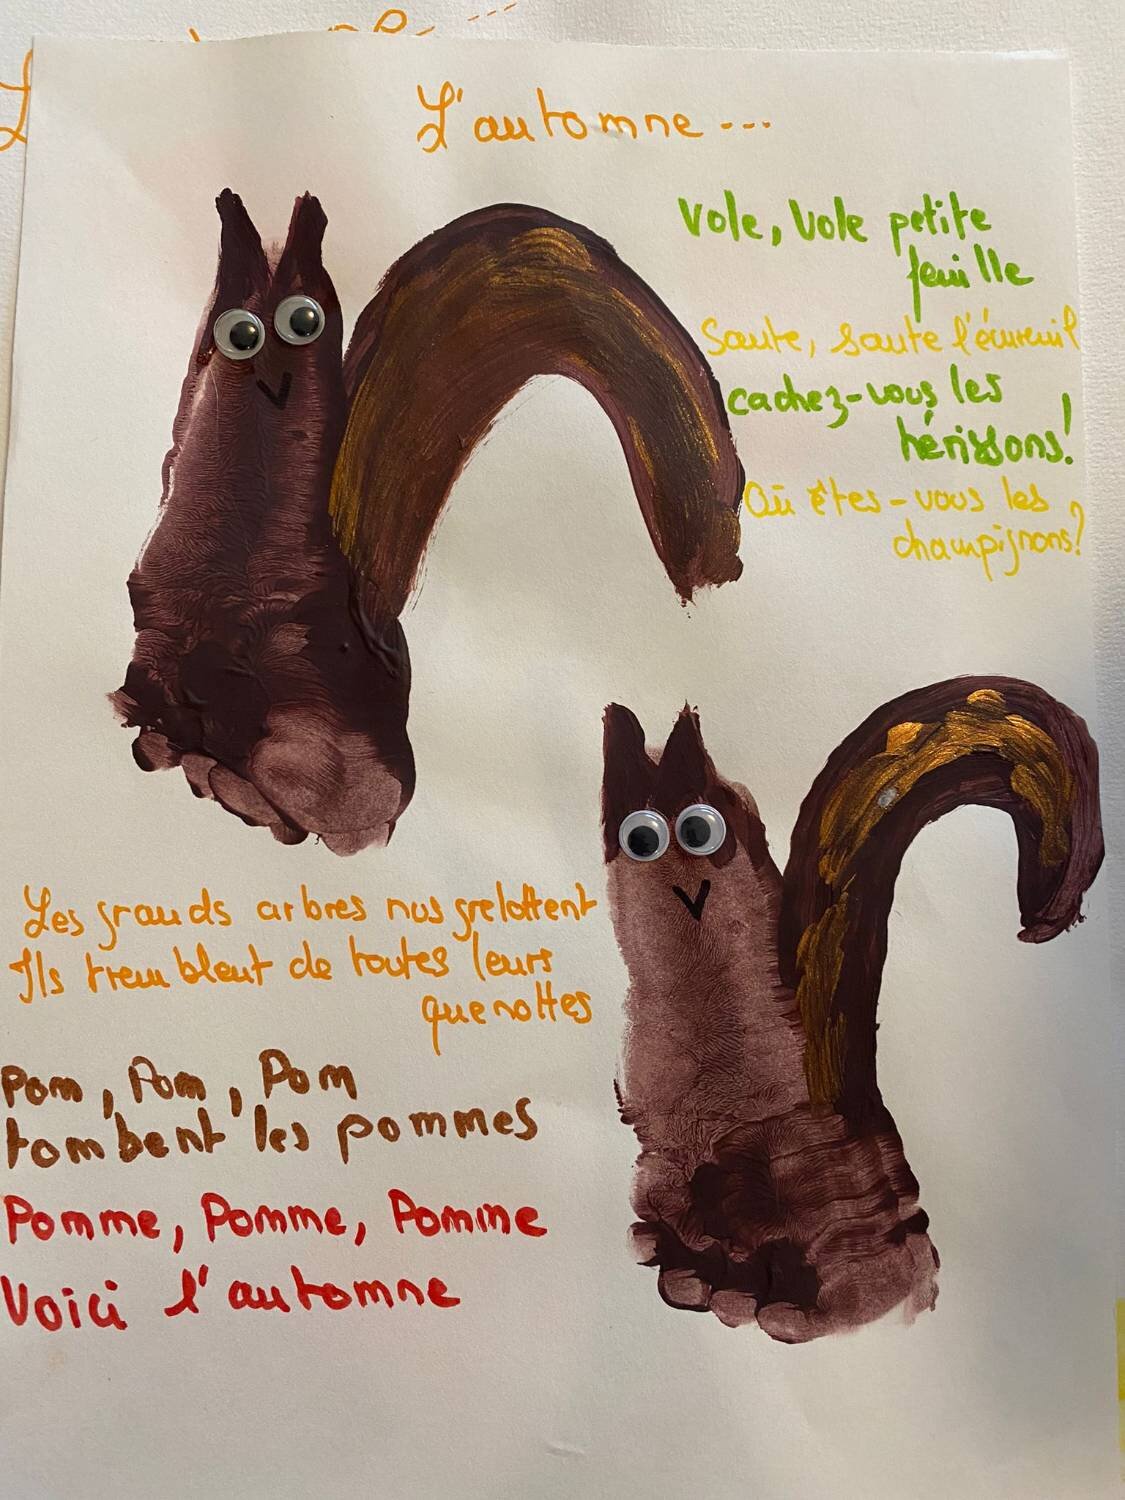 L'automne...
Vole, Vole petite
feuille
Saute, saute l'écureuil
cachez-vous les
hérissons!
Où êtes-vous les
champignons?
Les grands arbres nus grelottent
Ils tremblent de toutes leurs
quenottes
Pom, Pom, Pom
tombent les pommes
Pomme, Pomme, Pomme
Voici l'automne